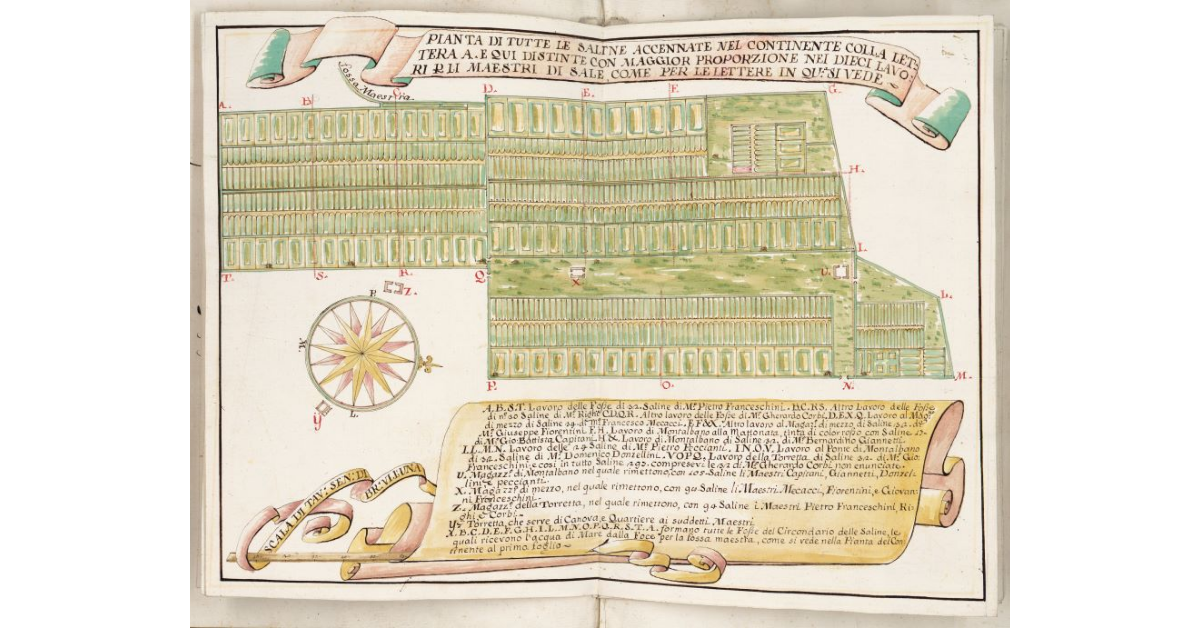 PIANTA DI TUTTE LE SALINE ACCENNATE NEL CONTINENTE COLLA LET-
TERA A. E QUI DISTINTE CON MAGGIOR PROPORZIONE NEI DIECI LAVO-
RI MAESTRI DI SALE, COME PER LE LETTERE IN SI VEDE
fossa Maestra
A. B. C. D. E. F. G.
H.
T. S. R. Q. X. I.
Z. L.
P. M. L. Y
P. O. N. M.
A.B.S.T. Lavoro delle Fosse di Saline di Mº Pietro Franceschini. B.C.R.S. Altro Lavoro delle Fosse
di nº 20 Saline di Mº C.D.Q.R. Altro lavoro delle Fosse di Mº Gherardo Corbi. D.E.X.Q. Lavoro al
di mezzo di Saline 44 Francesco Mecacci. E.F.&X. Altro lavoro al Magazº di mezzo, di Saline
Mº Giuseppe Fiorentini. F.H. Lavoro di Montalbano alla tinta di color rosso con Saline
di Mº Gio: Battista Capitani. H.& Lavoro di Montalbano di Saline 42. di Mº Bernardino Giannetti.
L.M.N. Lavoro delle Saline di Mº Pietro Peccianti. I.N.O.V. Lavoro al Ponte di Montalbano
di Saline di Mº Domenico Donzellini. V.O.P.Q. Lavoro della Torretta, di Saline di Mº Gio:
Franceschini, e così in tutto Saline 492. compresevi le 42 di Mº Gherardo Corbi non enunciate.
di Montalbano nel quale rimettono, con Saline li Maestri Capitani, Giannetti, Donzel-
lini, e peccianti.
X. di mezzo, nel quale rimettono, con Saline li Maestri Mecacci, Fiorentini, e Giovan-
ni Franceschini.
Z. della Torretta, nel quale rimettono, con 94 Saline i Maestri Pietro Franceschini, Ri-
ghi, e Corbi.
Y. Torretta, che serve di Canova e Quartiere ai suddetti Maestri.
B.C.D.E.F.G.H.I.L.M.N.O.P.Q.R.S.T.A. formano tutte le Fosse del Circondario delle Saline, le
quali ricevono l'acqua di Mare dalla Foce per la fossa maestra, come si vede nella Pianta del Con-
tinente al primo foglio
SCALA DI TAV. SEN: DI